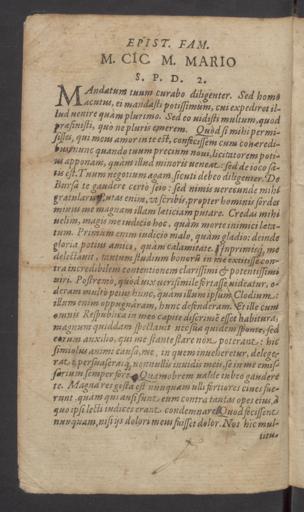 EPIST. FAM.
M. CIC. M. MARIO
S. P. D. 2.
MAndatum tuum curabo diligenter. Sed homo
acutus, ei mandasti potissimum, cui expediret il-
lud venire quam plurimo. Sed eo vidisti multum, quod
præfinisti, quo ne pluris emerem. Quòd si mihi permi-
sisses, qui meus amor in te est, confecissem cum coheredi-
bus: nunc quando tuum precium novi, licitatorem poti-
us apponam, quàm illud minoris veneat. sed de joco sa-
tis est. Tuum negotium agam, sicuti debeo diligenter. De
Bursa te gaudere certò scio: sed nimis verecundè mihi
gratularis. putas enim, ut scribis, propter hominis sordes
minus me magnam illam lætitiam putare. Credas mihi
velim, magis me judicio hoc, quàm morte inimici læta-
tum. Primum enim judicio malo, quàm gladio: deinde
gloria potius amici, quàm calamitate. Inprimisq, me
delectavit, tantum studium bonorū in me extitisse con-
tra incredibilem contentionem clarissimi & potentissimi
viri. Postremo, quod vix verisimile fortasse videatur, o-
deram multò pejus hunc, quàm illum ipsum Clodium.
illum enim oppugnaram, hunc defenderam. Et ille cum
omnis Respublica in meo capite discrimē esset habitura,
magnum quiddam spectavit: nec sua quidem sponte, sed
eorum auxilio, qui me stante stare non poterant: hic
simiolus animi causa, me, in quem inveheretur, delege-
rat: & persuaserat nonnullis invidis meis, se in me emis-
sarium semper fore. Quamobrem valde jubeo gaudere
te. Magna res gesta est nunquam ulli fortiores cives fue-
runt, quàm qui ausi sunt eum contra tantas opes ejus, à
quo ipsi lecti judices erant, condemnare. Quod fecissent
nunquam, nisi ijs dolori meus fuisset dolor. Nos hic mul-
titu-